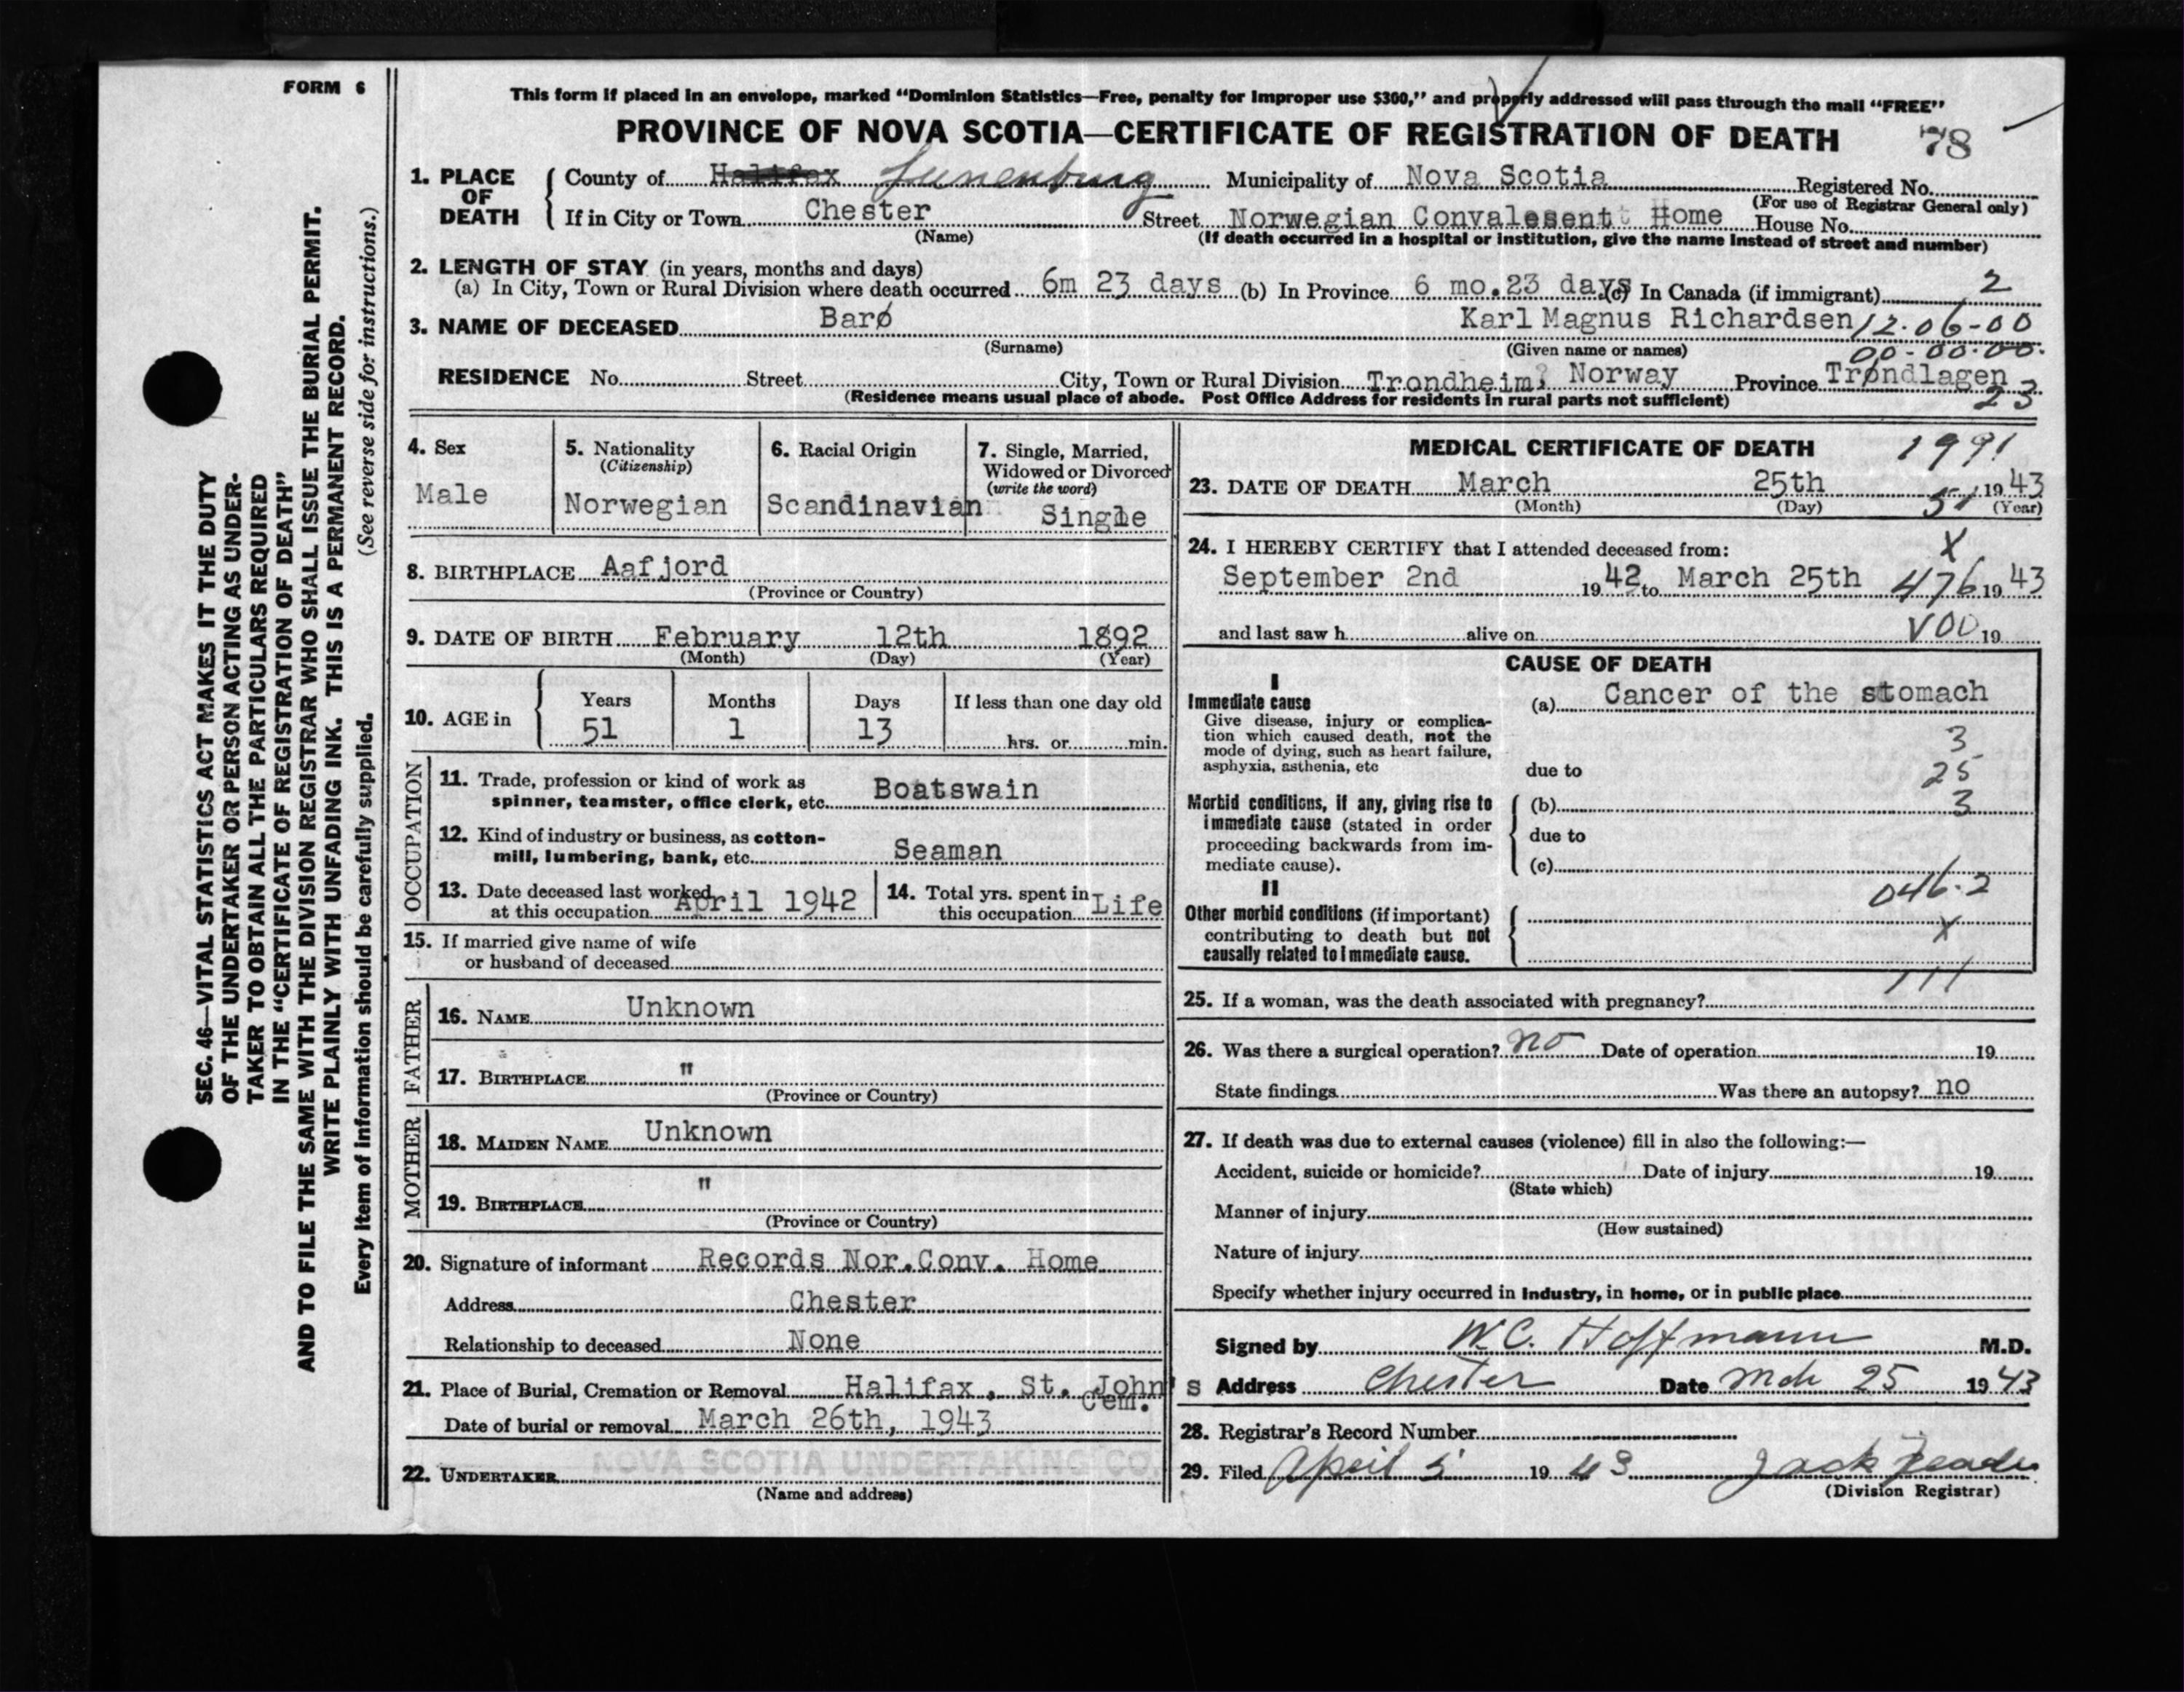 FORM 6
This form if placed in an envelope, marked "Dominion Statistics—Free, penalty for improper use $300," and properly addressed will pass through the mail "FREE"
PROVINCE OF NOVA SCOTIA—CERTIFICATE OF REGISTRATION OF DEATH 78
1. PLACE OF DEATH County of Halifax Lunenburg Municipality of Nova Scotia Registered No.
(For use of Registrar General only)
If in City or Town Chester Street Norwegian Convalesent Home House No.
(Name) (If death occurred in a hospital or institution, give the name instead of street and number)
2. LENGTH OF STAY (in years, months and days)
(a) In City, Town or Rural Division where death occurred 6m 23 days (b) In Province 6 mo.23 days (c) In Canada (if immigrant) 2
3. NAME OF DECEASED Barø Karl Magnus Richardsen 12-06-00
(Surname) (Given name or names) 00-00-00.
RESIDENCE No. Street City, Town or Rural Division Trondheim, Norway Province Trøndlagen
(Residence means usual place of abode. Post Office Address for residents in rural parts not sufficient) 23
4. Sex
Male
5. Nationality
(Citizenship)
Norwegian
6. Racial Origin
Scandinavian
7. Single, Married,
Widowed or Divorced
(write the word)
Single
8. BIRTHPLACE Aafjord
(Province or Country)
9. DATE OF BIRTH February 12th 1892
(Month) (Day) (Year)
10. AGE in Years Months Days If less than one day old
51 1 13 hrs. or min.
OCCUPATION
11. Trade, profession or kind of work as
spinner, teamster, office clerk, etc. Boatswain
12. Kind of industry or business, as cotton-
mill, lumbering, bank, etc. Seaman
13. Date deceased last worked
at this occupation April 1942
14. Total yrs. spent in
this occupation Life
15. If married give name of wife
or husband of deceased
FATHER
16. NAME Unknown
17. BIRTHPLACE "
(Province or Country)
MOTHER
18. MAIDEN NAME Unknown
19. BIRTHPLACE "
(Province or Country)
20. Signature of informant Records Nor.Conv. Home
Address Chester
Relationship to deceased None
21. Place of Burial, Cremation or Removal Halifax, St. John's
Cem.
Date of burial or removal March 26th, 1943
22. UNDERTAKER NOVA SCOTIA UNDERTAKING CO.
(Name and address)
MEDICAL CERTIFICATE OF DEATH 1991
23. DATE OF DEATH March 25th 1943
(Month) (Day) 51 (Year)
24. I HEREBY CERTIFY that I attended deceased from: X
September 2nd 1942 to March 25th 476 1943
and last saw h alive on V00 19
CAUSE OF DEATH
I
Immediate cause
Give disease, injury or complica-
tion which caused death, not the
mode of dying, such as heart failure,
asphyxia, asthenia, etc
(a) Cancer of the stomach
3
due to 25
Morbid conditions, if any, giving rise to
immediate cause (stated in order
proceeding backwards from im-
mediate cause).
(b) 3
due to
(c)
II
046.2
Other morbid conditions (if important)
contributing to death but not
causally related to immediate cause.
X
111
25. If a woman, was the death associated with pregnancy?
26. Was there a surgical operation? no Date of operation 19
State findings Was there an autopsy? no
27. If death was due to external causes (violence) fill in also the following:—
Accident, suicide or homicide? Date of injury 19
(State which)
Manner of injury
(How sustained)
Nature of injury
Specify whether injury occurred in industry, in home, or in public place
Signed by W.C. Hoffmann M.D.
Address Chester Date Mch 25 1943
28. Registrar's Record Number
29. Filed April 5 1943 Jack
(Division Registrar)
SEC. 46—VITAL STATISTICS ACT MAKES IT THE DUTY
OF THE UNDERTAKER OR PERSON ACTING AS UNDER-
TAKER TO OBTAIN ALL THE PARTICULARS REQUIRED
IN THE "CERTIFICATE OF REGISTRATION OF DEATH"
AND TO FILE THE SAME WITH THE DIVISION REGISTRAR WHO SHALL ISSUE THE BURIAL PERMIT.
WRITE PLAINLY WITH UNFADING INK. THIS IS A PERMANENT RECORD.
Every item of information should be carefully supplied. (See reverse side for instructions.)